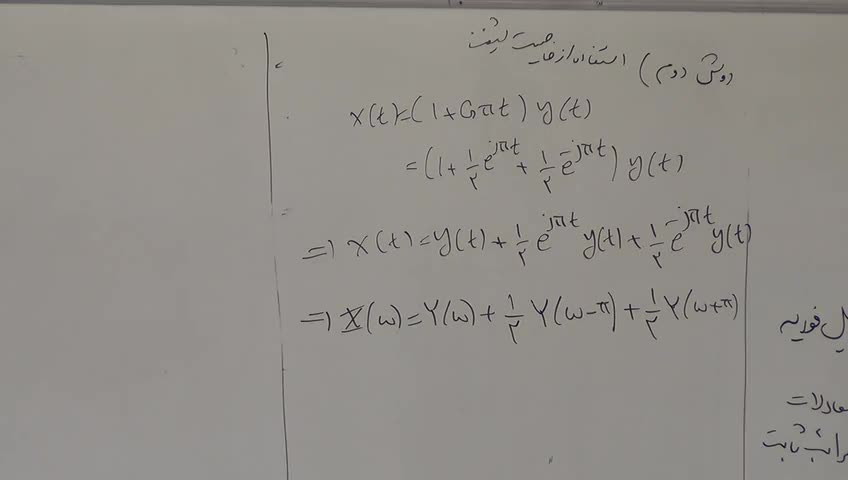 روش دوم) استفاده از خاصیت شیفت
x(t)=(1+Cosπt) y(t)
=(1+\frac{1}{۲}e^{jπt}+\frac{1}{۲}e^{-jπt}) y(t)
=> x(t)=y(t)+\frac{1}{۲}e^{jπt}y(t)+\frac{1}{۲}e^{-jπt}y(t)
=> X(ω)=Y(ω)+\frac{1}{۲}Y(ω-π)+\frac{1}{۲}Y(ω+π)
یل فوریه
عادلات
رائب ثابت